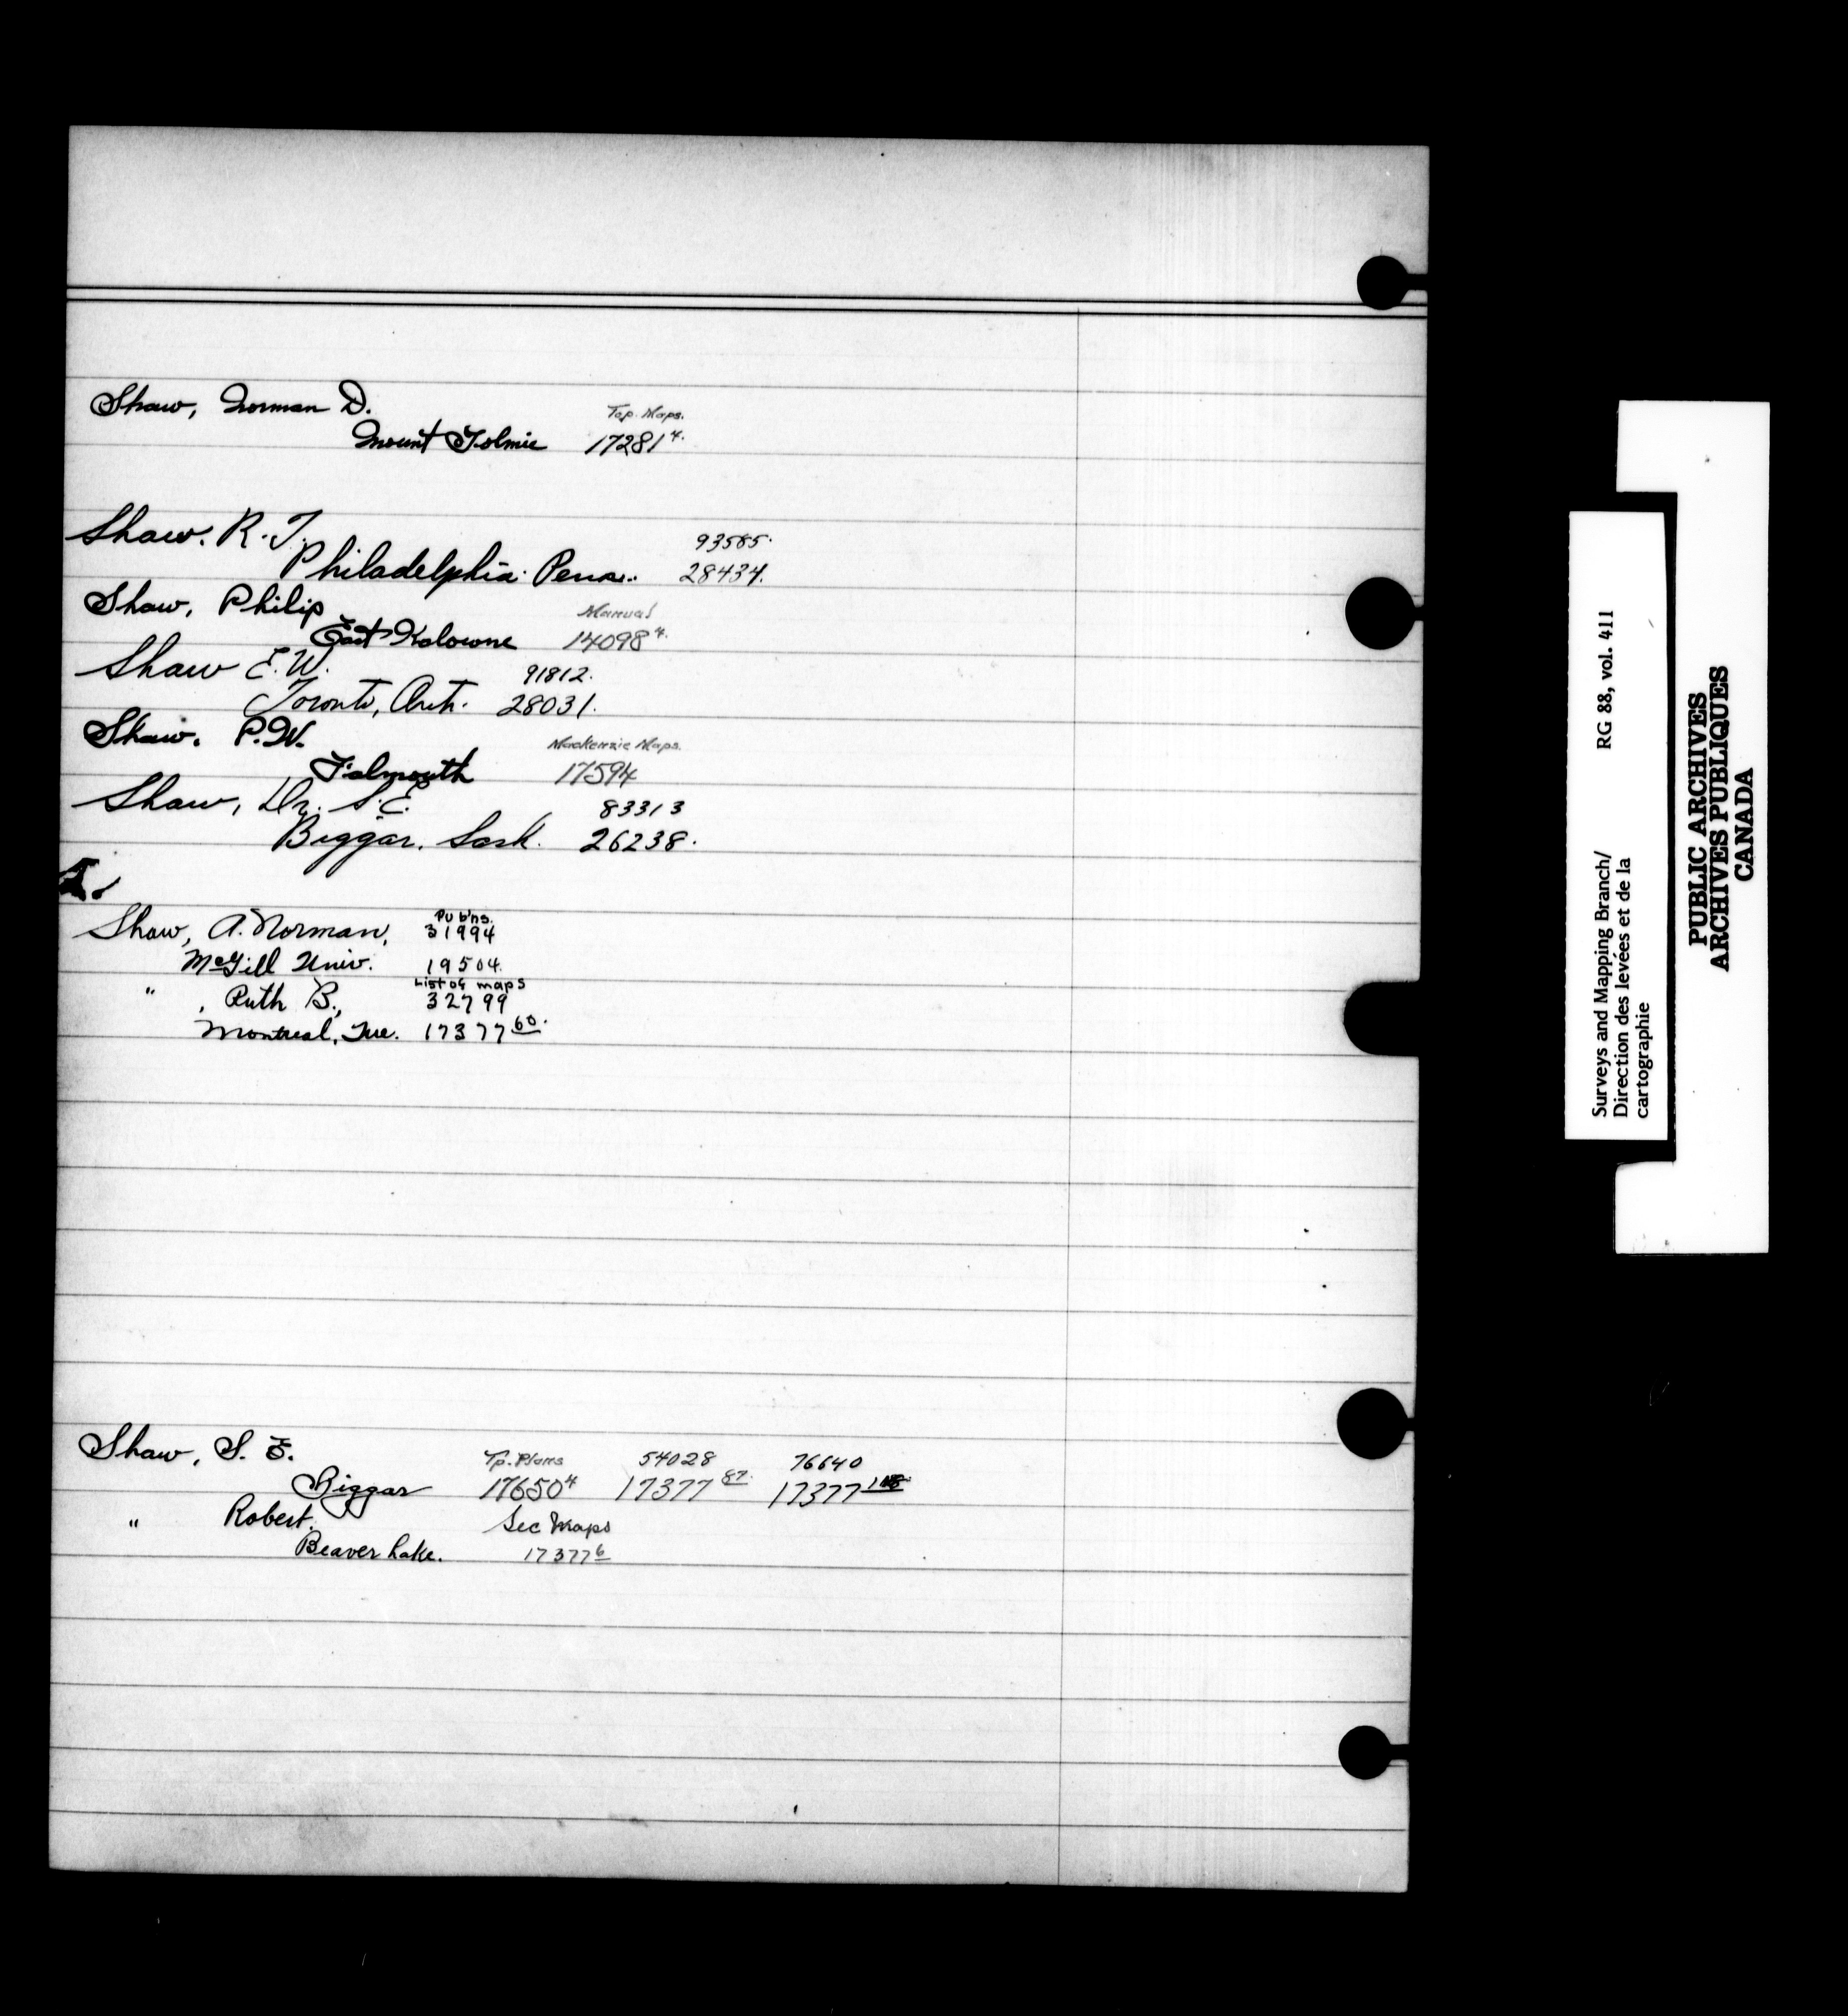 Shaw, Norman D. Top. Maps.
Mount Tolmie 17281 4.
Shaw. R. T. 93585.
Philadelphia. Penn. 28434.
Shaw, Philip Manual
East Kelowna 14098 4.
Shaw E. W. 91812.
Toronto, Ont. 28031.
Shaw. P. W. Mackenzie Maps.
Falmouth 17594
Shaw, Dr. S. E. 83313
Biggar, Sask. 26238.
Pub'ns.
Shaw, A. Norman, 31994
McGill Univ. 19504.
List of maps
" , Ruth B., 32799
Montreal, Que. 17377 60.
Shaw, S. E. Tp. Plans 54028 76640
Biggar 17650 4 17377 87. 17377
" Robert. Sec Maps
Beaver Lake. 17377 6
Surveys and Mapping Branch/ RG 88, vol. 411
Direction des levées et de la
cartographie
PUBLIC ARCHIVES
ARCHIVES PUBLIQUES
CANADA